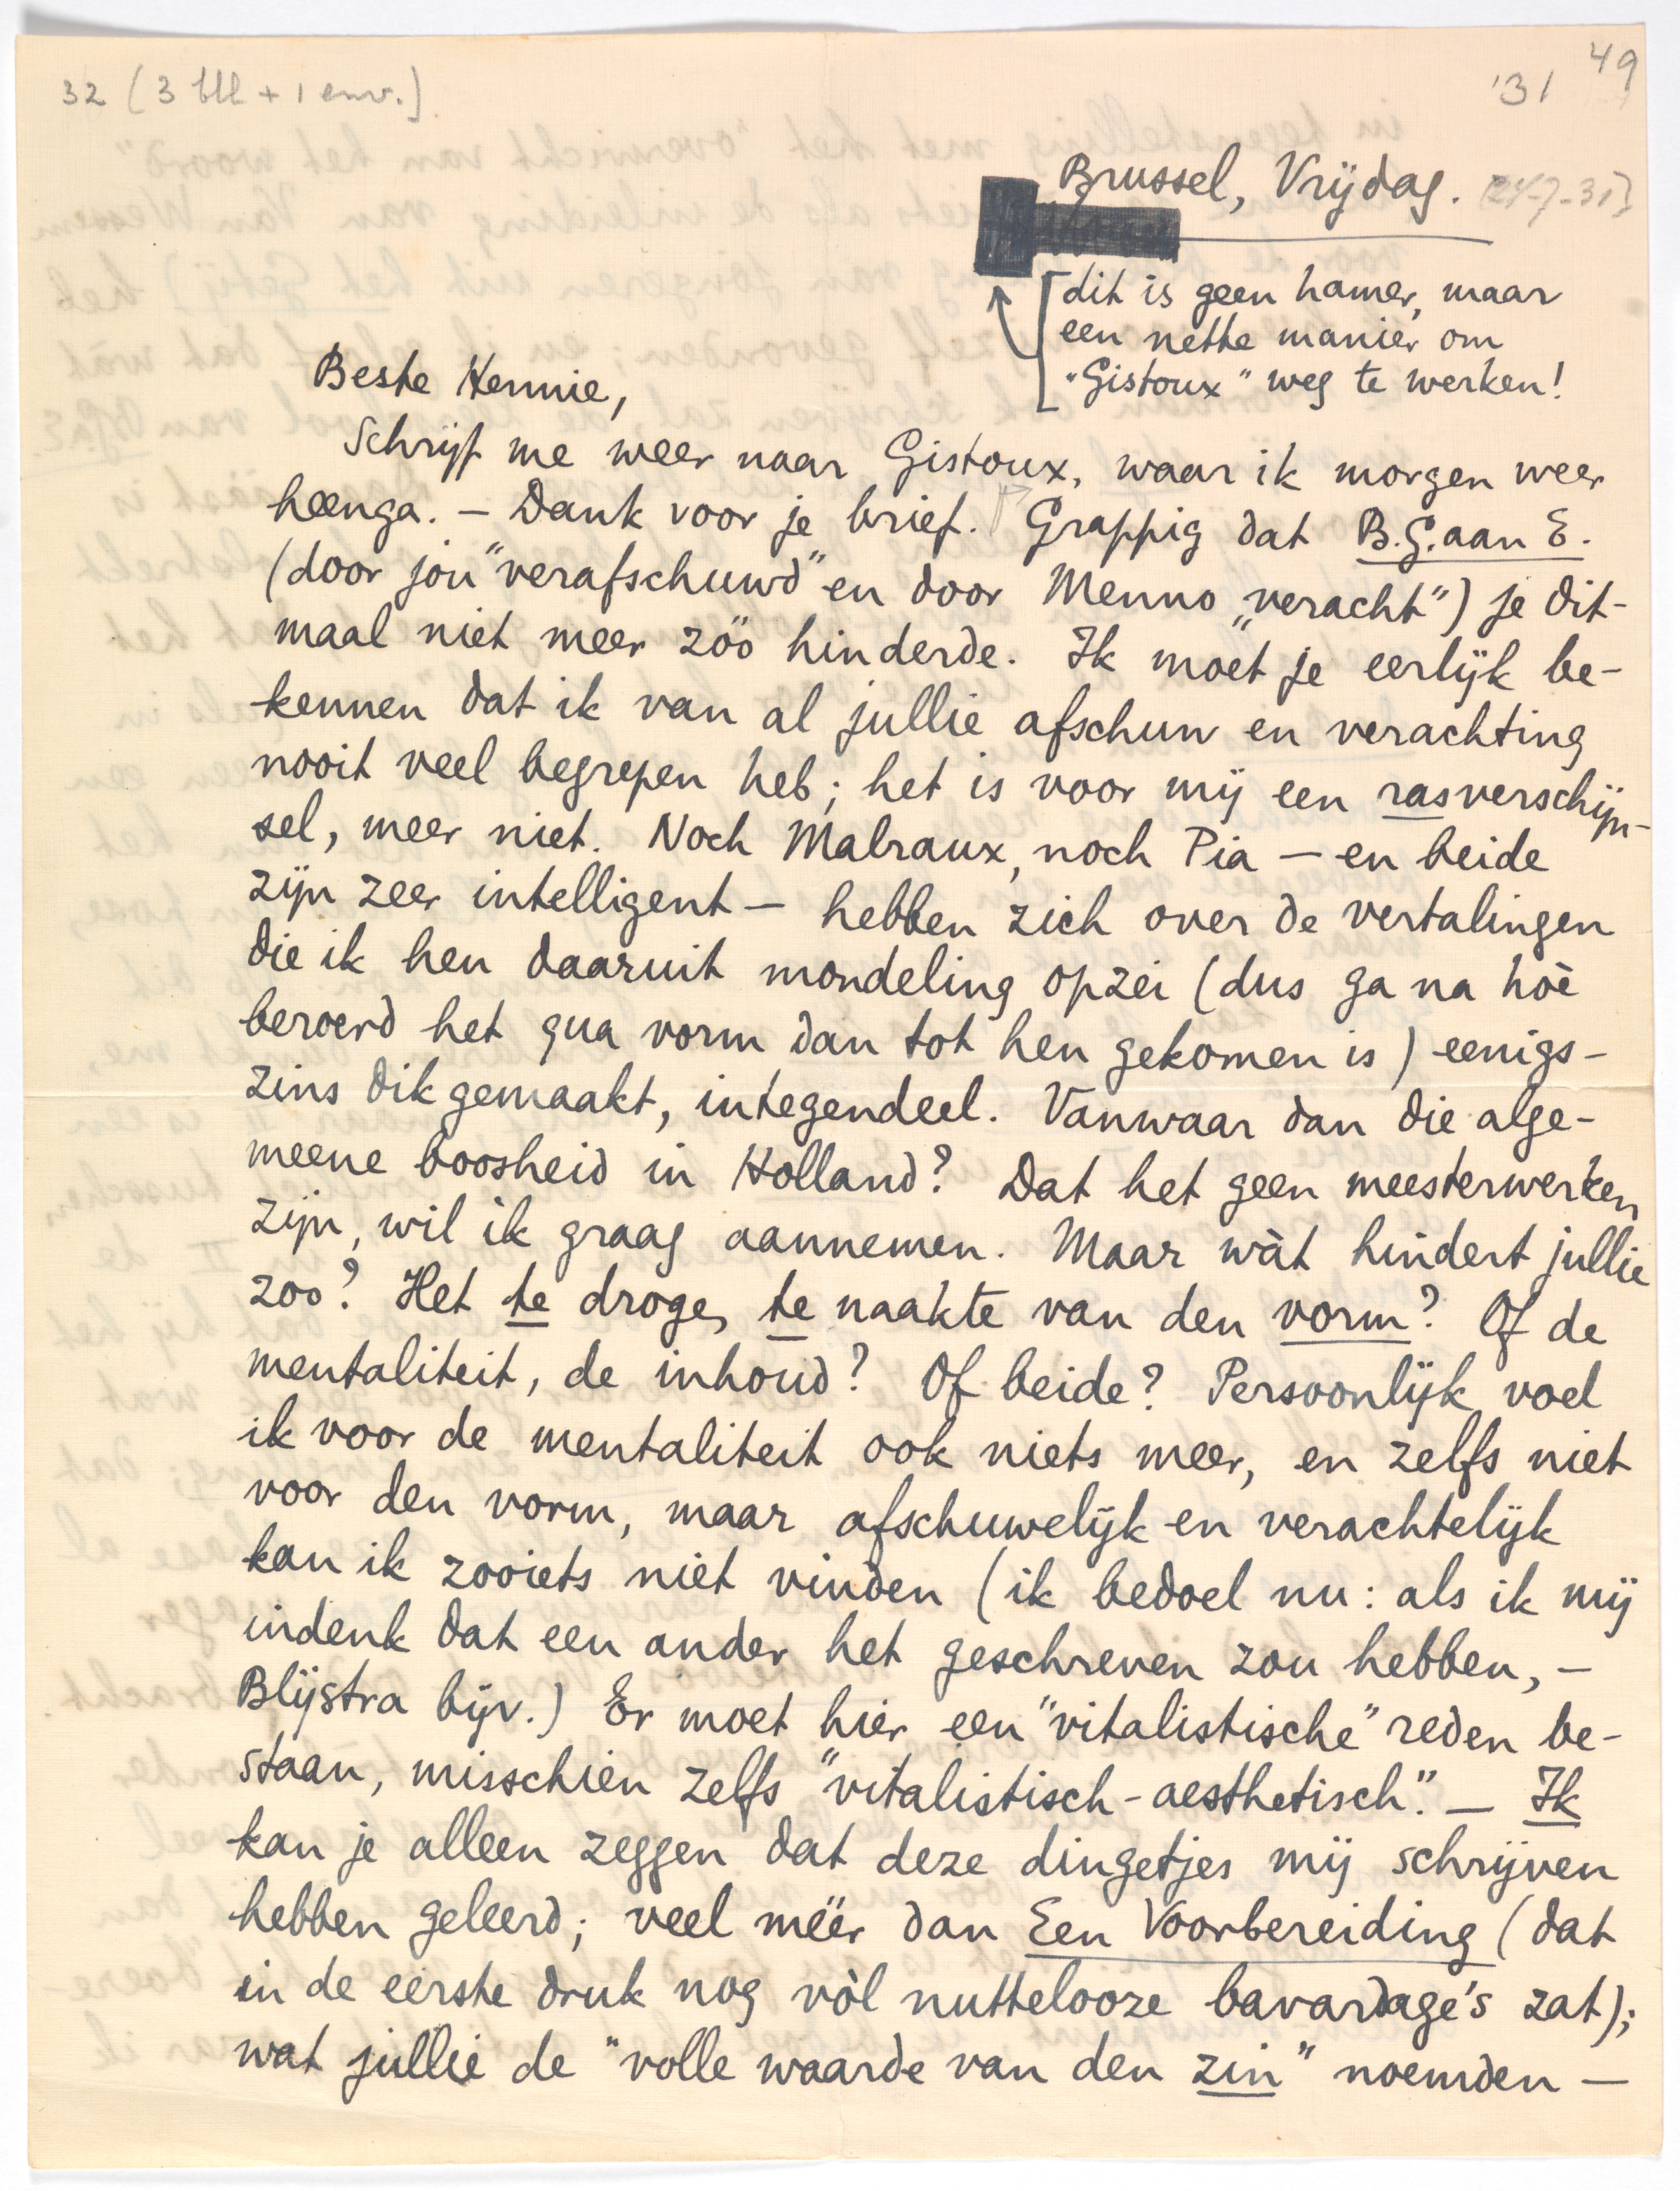 32 (3 bll + 1 env.)
'31 49
Brussel, Vrijdag. [24-7-31]
[dit is geen hamer, maar
een nette manier om
"Gistoux" weg te werken!
Beste Hennie,
Schrijf me weer naar Gistoux, waar ik morgen weer
heenga. – Dank voor je brief. Grappig dat B.G. aan E.
(door jou "verafschuwd" en door Menno "veracht") je dit-
maal niet meer zóó hinderde. Ik moet je eerlijk be-
kennen dat ik van al jullie afschuw en verachting
nooit veel begrepen heb; het is voor mij een rasverschijn-
sel, meer niet. Noch Malraux, noch Pia – en beide
zijn zeer intelligent – hebben zich over de vertalingen
die ik hen daaruit mondeling opzei (dus ga na hòè
beroerd het qua vorm dan tot hen gekomen is) eenigs-
zins dik gemaakt, integendeel. Vanwaar dan die alge-
meene boosheid in Holland? Dat het geen meesterwerken
zijn, wil ik graag aannemen. Maar wàt hindert jullie
zoo? Het te droge, te naakte van den vorm? Of de
mentaliteit, de inhoud? Of beide? Persoonlijk voel
ik voor de mentaliteit ook niets meer, en zelfs niet
voor den vorm, maar afschuwelijk en verachtelijk
kan ik zooiets niet vinden (ik bedoel nu: als ik mij
indenk dat een ander het geschreven zou hebben, –
Blijstra bijv.) Er moet hier een "vitalistische" reden be-
staan, misschien zelfs "vitalistisch-aesthetisch". – Ik
kan je alleen zeggen dat deze dingetjes mij schrijven
hebben geleerd; veel méér dan Een Voorbereiding (dat
in de eerste druk nog vòl nuttelooze bavardage's zat);
wat jullie de "volle waarde van den zin" noemden –